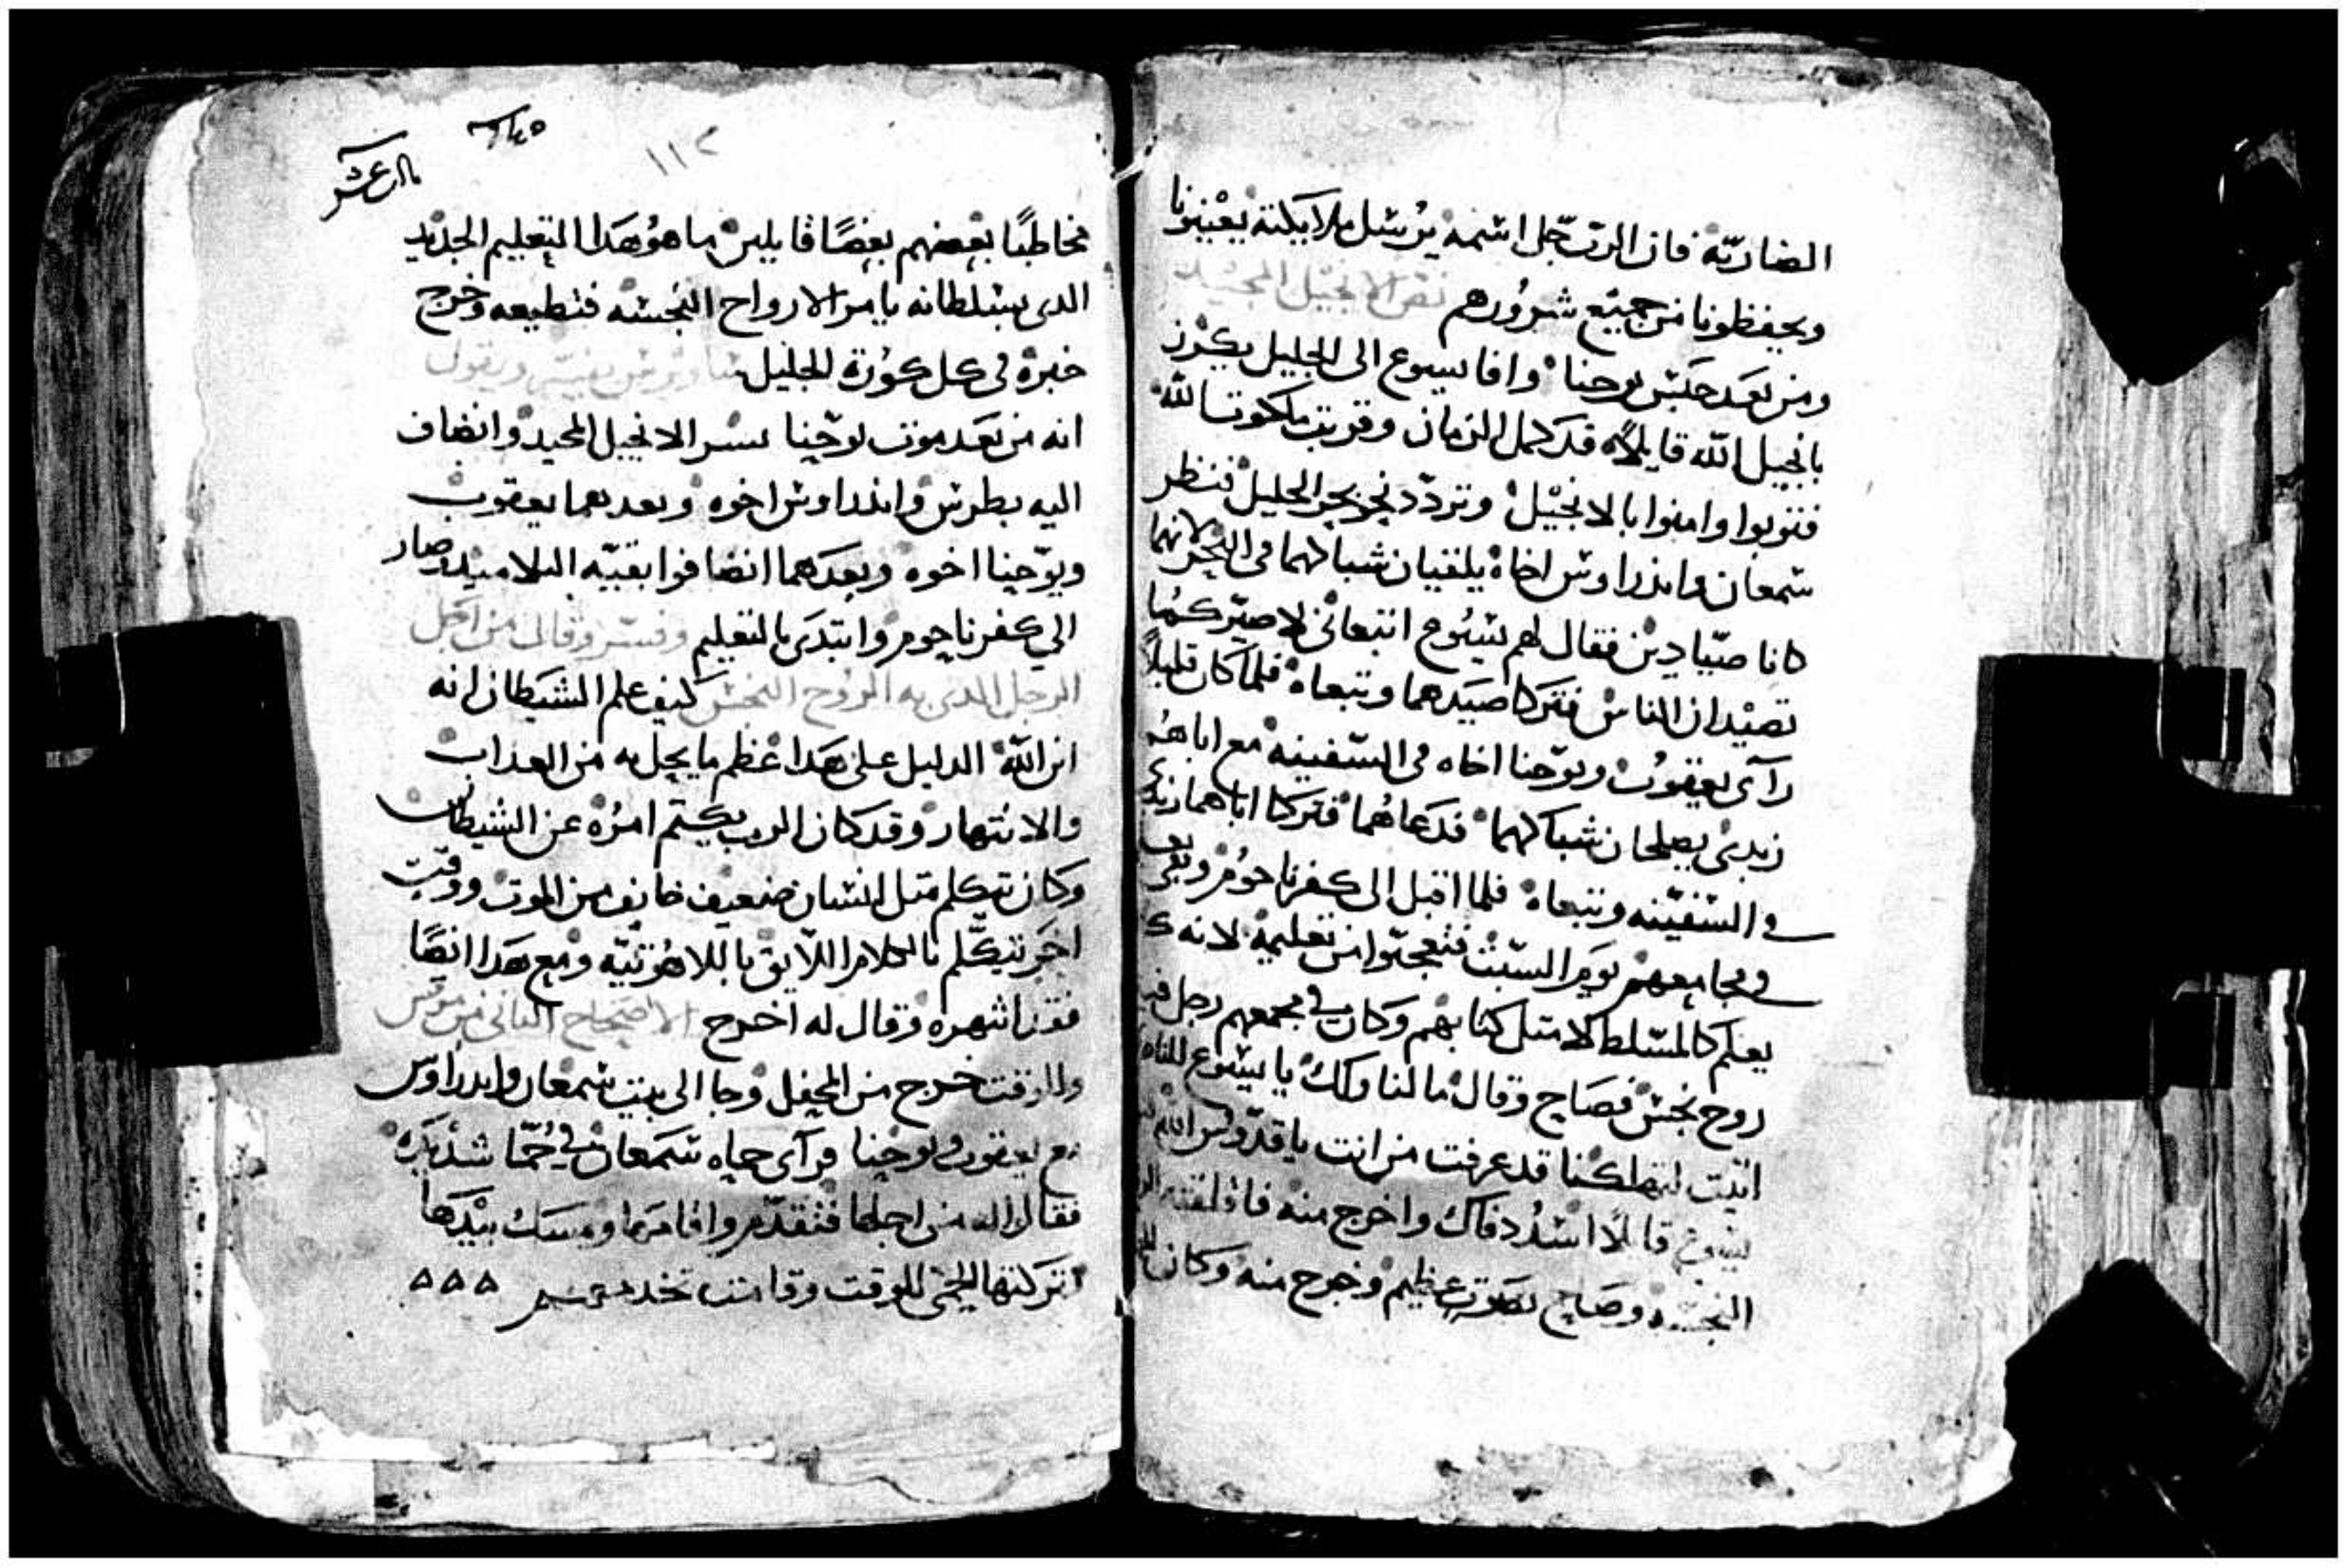 الضاربة فان الرب جل اسمه يرسل ملايكته يعينونا
ويحفظونا من جميع شرورهم نقرا الانجيل المجيد
ومن بعد حبس يوحنا وافا يسوع الى الجليل يكرز
بانجيل الله قايلاً قد كمل الزمان وقربت ملكوت الله
فتوبوا وامنوا بالانجيل وتردد نحو بحر الجليل فنظر
شمعان واندراوس اخاه يلقيان شباكهما في البحر لانهما
كانا صيادين فقال لهم يسوع اتبعاني لاصيركما
تصيدان الناس فتركا صيدهما وتبعاه فلما كان قليلاً
رآى يعقوب ويوحنا اخاه في السفينه مع اباهم
زبدى يصلحان شباكهما فدعاهما فتركا اباهما زبدى
في السفينه وتبعاه فلما اقبل الى كفرناحوم وبقى
في مجامعهم يوم السبت فتعجبوا من تعليمه لانه
يعلم كالمسلط لا متل كتابهم وكان في مجمعهم رجل فيه
روح نجس فصاح وقال ما لنا ولك يا يسوع
اتيت لتهلكنا قد عرفت من انت يا قدوس الله
يسوع قايلاً اسدد فاك واخرج منه فاقلقته
النجسه وصاح بصوت عظيم وخرج منه وكان
١١٢
مخاطبًا بعضهم بعضًا قايلين ما هو هدا التعليم الجديد
الدى بسلطانه يامر الارواح النجسه فتطيعه وخرج
خبره في كل كورة الجليل ساويرس يفسر ويقول
انه من بعد موت يوحنا بشر الانجيل المجيد وانضاف
اليه بطرس واندراوس اخوه وبعدهما يعقوب
ويوحنا اخوه وبعدهما انضافوا بقية التلاميد وصار
الي كفرناحوم وابتدى بالتعليم وفسر وقال من اجل
الرجل الدى به الروح النجس كيف علم الشيطان انه
ابن الله الدليل على هدا عظم ما يحل به من العداب
والانتهار وقد كان الرب يكتم امره عن الشيطان
وكان يتكلم متل انسان ضعيف خايف من الموت ووقت
اخر يتكلم بالكلام اللايق باللاهوتيه ومع هدا ايضًا
فقد انتهره وقال له اخرج الاصحاح التاني من مرقس
وللوقت خرج من المحفل وجا الى بيت شمعان واندراوس
مع يعقوب ويوحنا فرآى حماه شمعان في حما شديده
فقالوا له من اجلها فتقدم واقامها ومسك بيدها
فتركتها الحمى للوقت وقامت تخدمهم